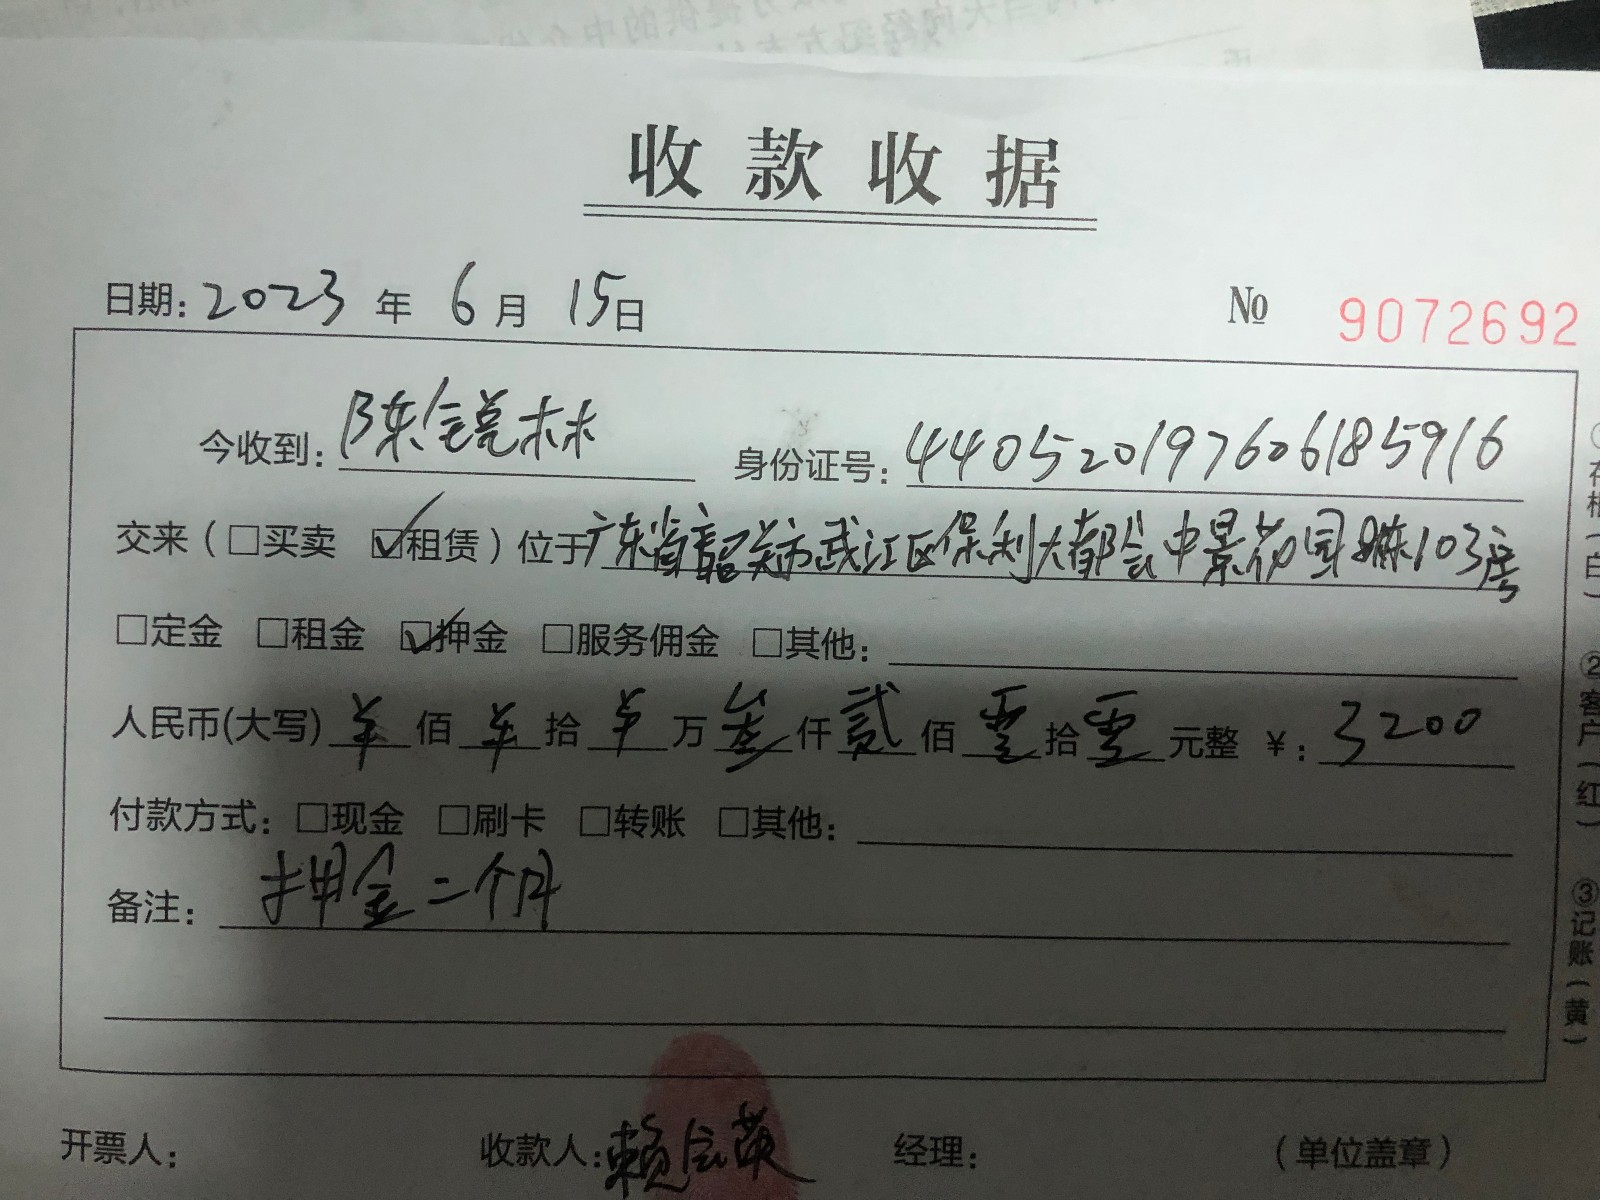 收款收据
日期:2023年6月15日 № 9072692
今收到:陈锐林 身份证号:440520197606185916
交来(□买卖 ☑租赁)位于广东省韶关市武江区保利大都会中景花园8栋103房
□定金 □租金 ☑押金 □服务佣金 □其他:
人民币(大写)羊佰羊拾羊万叁仟贰佰零拾零元整 ¥:3200
付款方式:□现金 □刷卡 □转账 □其他:
备注:押金二个月
开票人: 收款人:赖 英 经理: (单位盖章)
存根(白)
②客户(红)
③记账(黄)